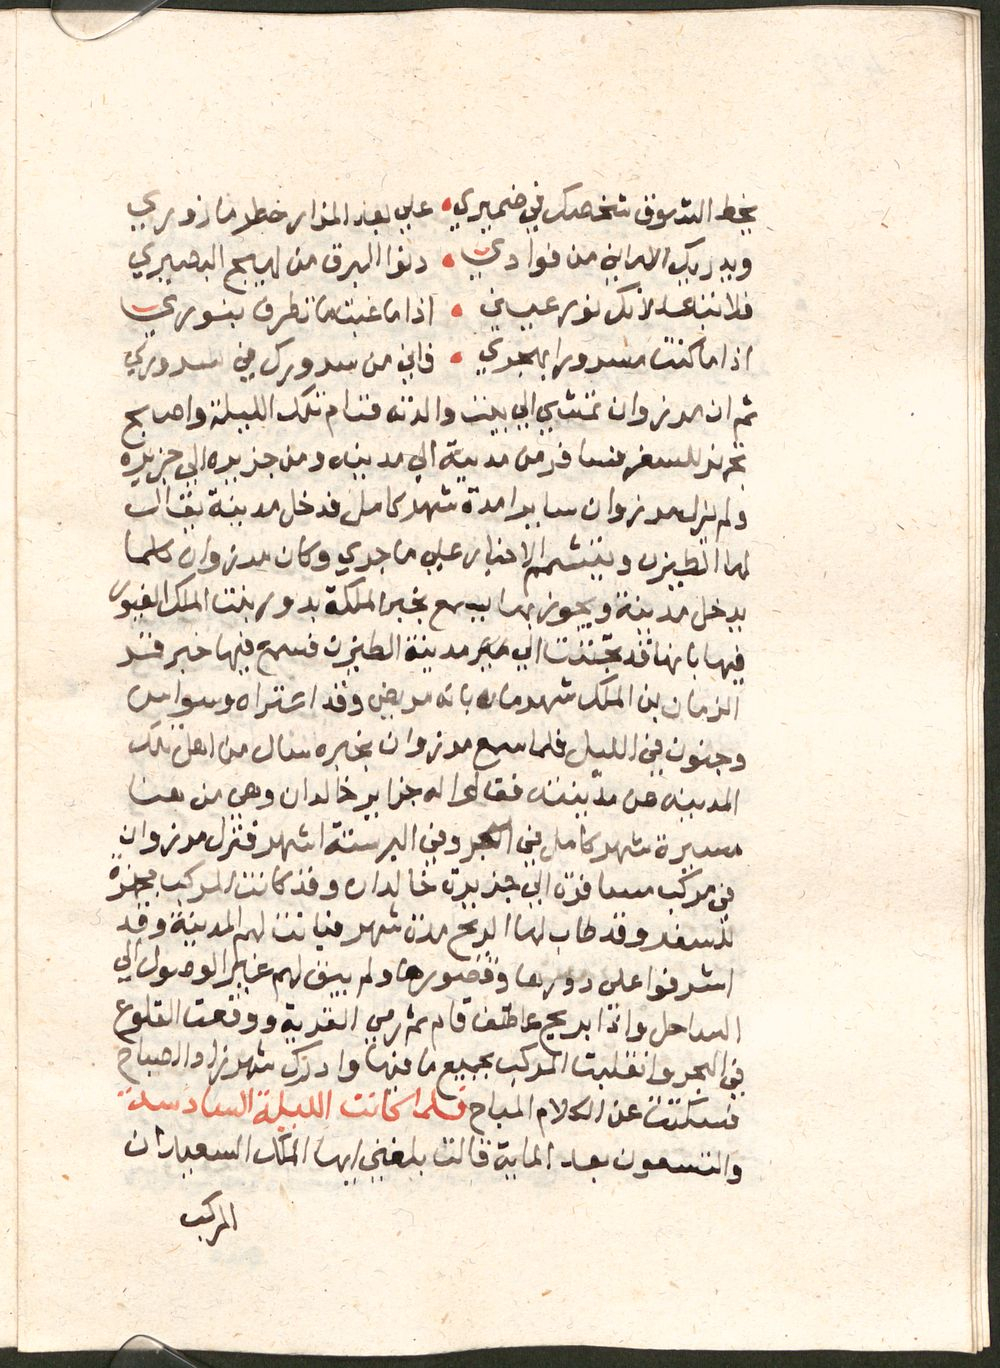 يخط الشوق شخصك في ضميري • علي بعد المزار خطر ما زوري
ويدنيك الاماني من فوادي • دنوا البرق من لمح البصيري
فلا تبعد لانك نور عيني • اذا ما غبت ما تطرف بنوري
اذا ما كنت مسرورا بهجري • فاني من سرورك في سروري
ثم ان مرزوان تمشي الي بيت والدته فنام تلك الليلة واصبح
تجهز للسفر فسافر من مدينة الي مدينه ومن جزيره الي جزيره
ولم يزل مرزوان سايرا مدة شهر كامل فدخل مدينة يقال
لها الطيرن ويتشمم الاخبار علي ما جري وكان مرزوان كلما
يدخل مدينة ويجوز بها يسمع بخبر الملكة بدور بنت الملك الغيور
فيها بانها قد تجننت الي مدينة الطيرن فسمع فيها خبر قمر
الزمان بن الملك شهرمان بانه مريض وقد اعتراه وسواس
وجنون في الليل فلما سمع مرزوان بخبره سال من اهل تلك
المدينه عن مدينته فقالوا له جزاير خالدان وهي من هنا
مسيرة شهر كامل في البحر وفي البر ستة اشهر فنزل مرزوان
في مركب مسافرة الي جزيرة خالدان وقد كانت المركب مجهزة
للسفر وقد طاب لها الريح مدة شهر فبانت لهم المدينة وقد
اشرفوا علي دورها وقصورها ولم يبق لهم غير الوصول الي
الساحل واذا بريح عاصف قام ثم رمي القرية ووقعت القلوع
في البحر وانقلبت المركب بجميع ما فيها وادرك شهرزاد الصباح
فسكتت عن الكلام المباح فلما كانت الليلة السادسة
والتسعون بعد الماية قالت بلغني ايها الملك السعيد ان
المركب